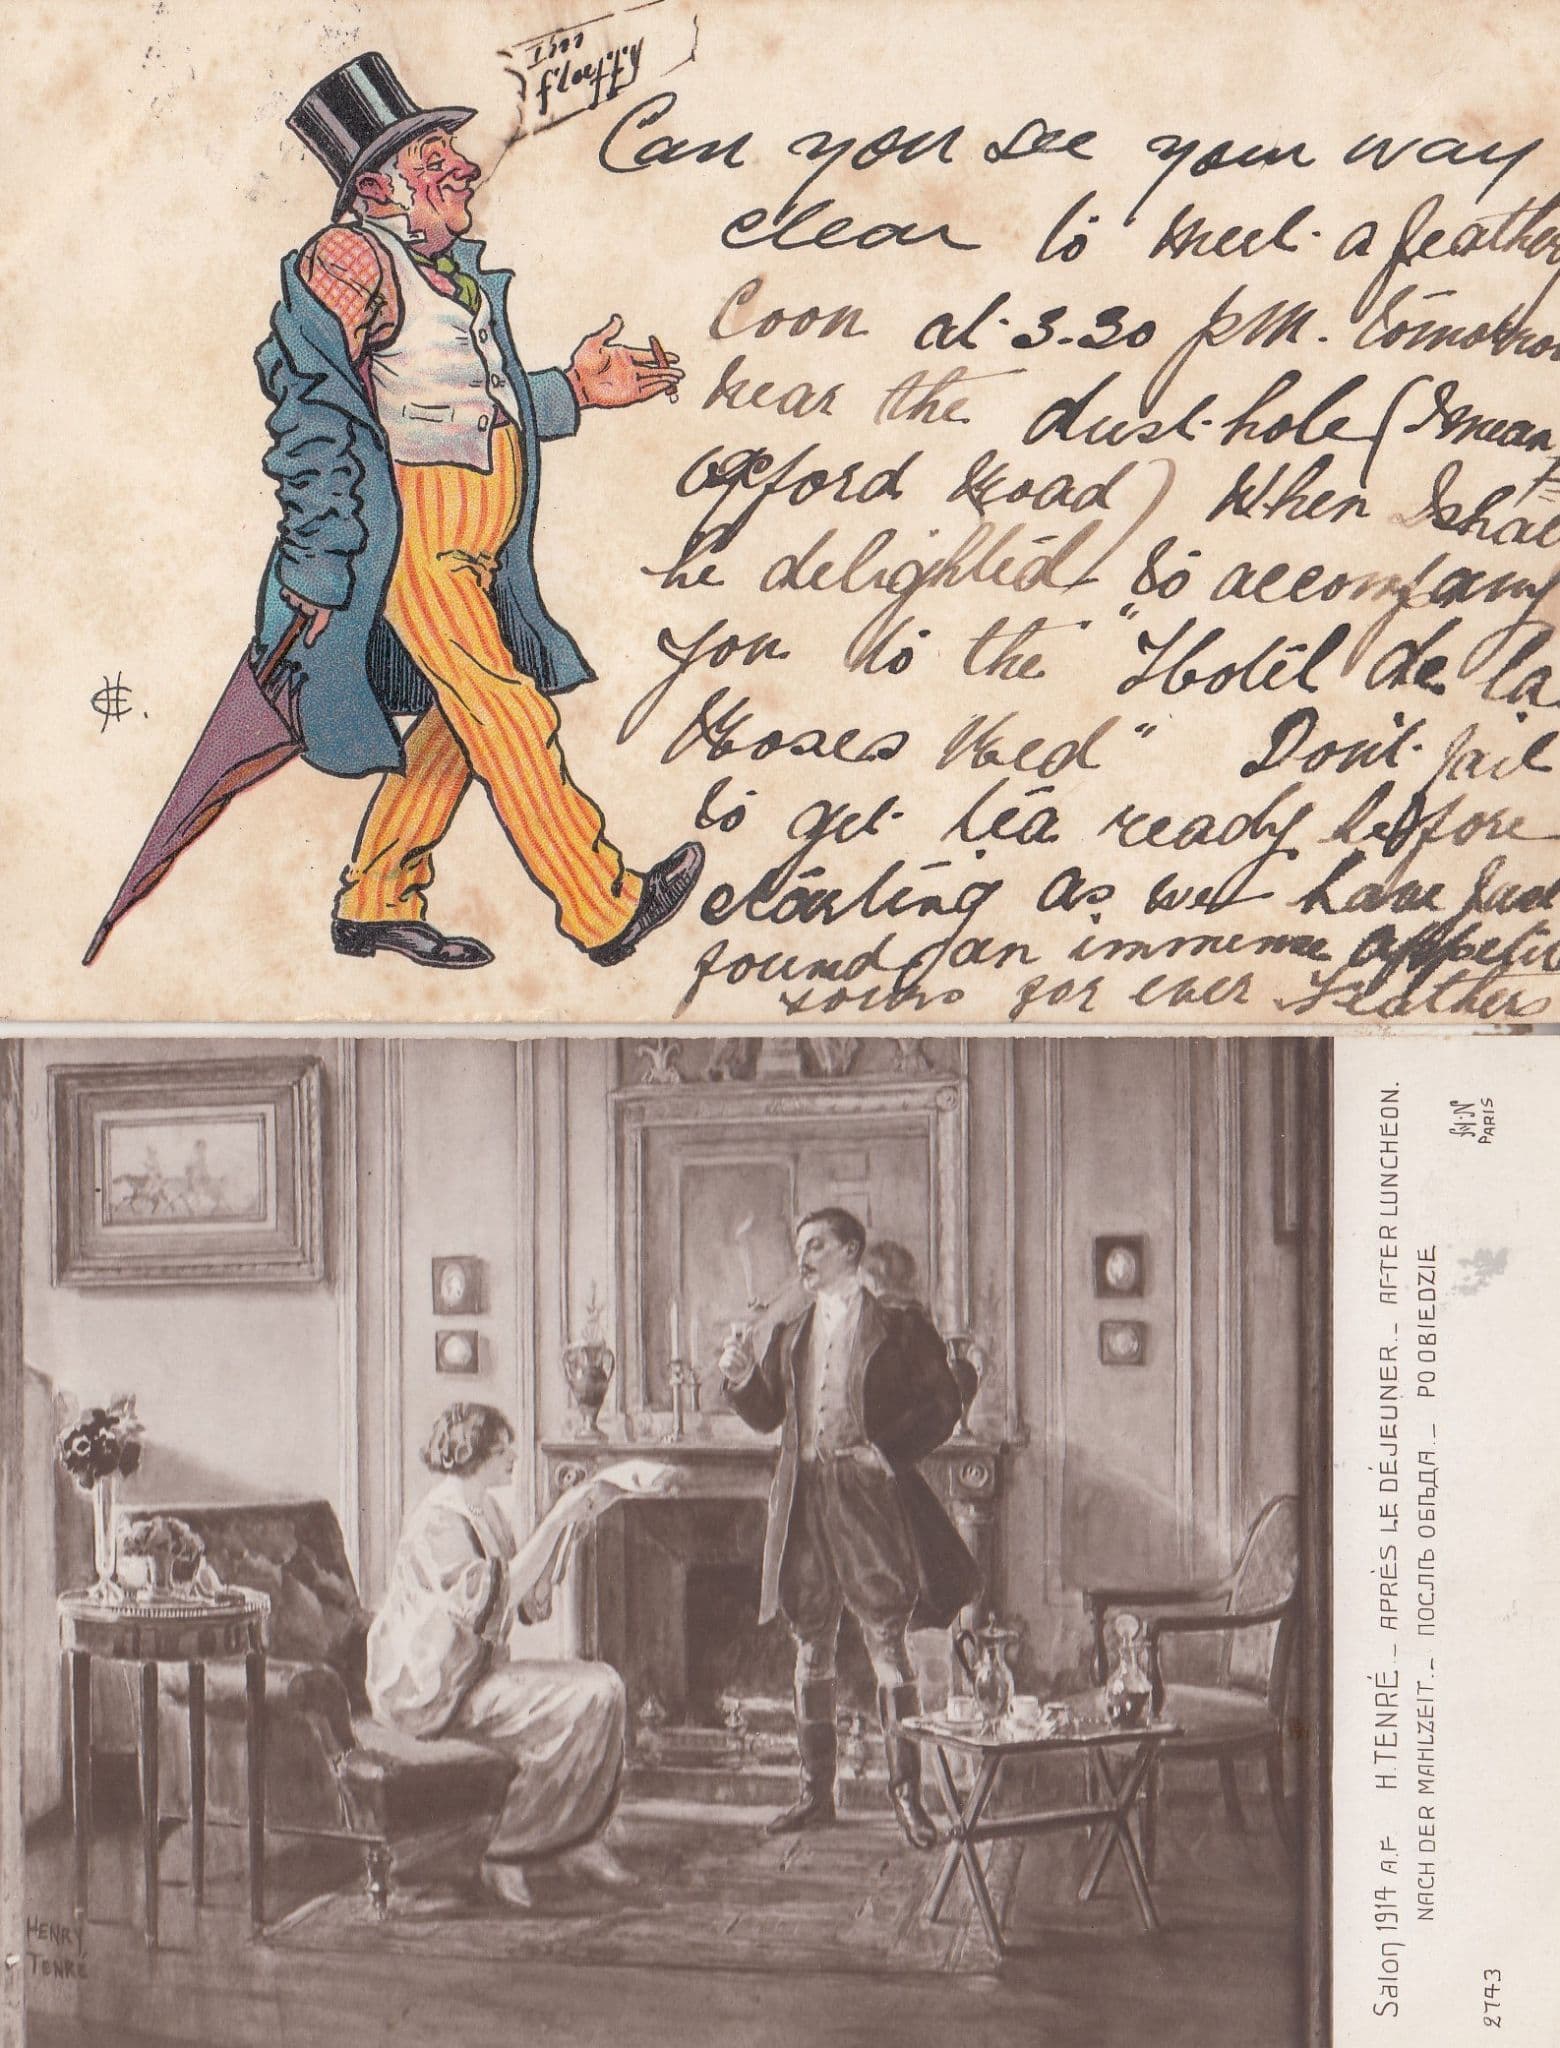 Can you see your way
clear to meet a feather
Coon at 3-30 pm. tomorrow
near the dust-hole (I mean
Oxford Road) When I shal
be delighted to accompany
you to the "Hotel de la
Roses Red" Don't fail
to get tea ready before
starting as we have just
found an immense appetite
yours for ever Feathers
HENRY
TENRÉ
Salon 1914 A.F H. TENRÉ._ APRÈS LE DÉJEUNER._ AFTER LUNCHEON.
NACH DER MAHLZEIT._ ПОСЛѢ ОБѢДА._ PO OBIEDZIE
A.N
PARIS
2743